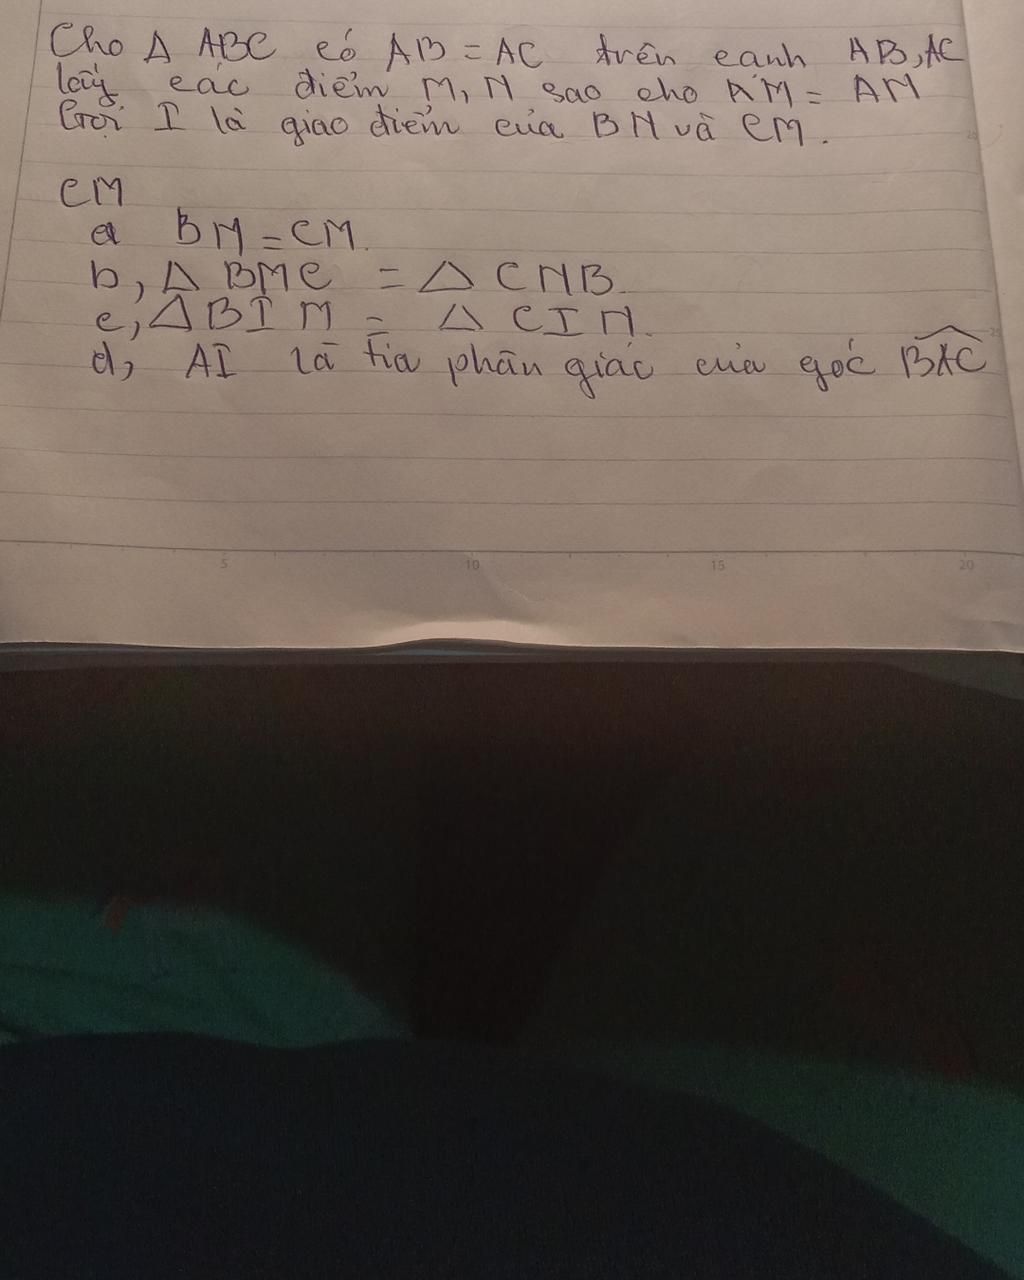 Cho Δ ABC có AB = AC trên cạnh AB, AC
lấy các điểm M, N sao cho AM = AN
Gọi I là giao điểm của BN và CM.
CM
a BN = CM.
b, Δ BMC = Δ CNB.
c, Δ BIM = Δ CIN.
d, AI là tia phân giác của góc BAC
5 10 15 20